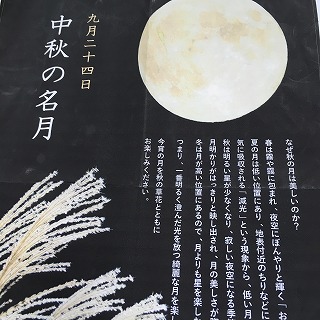 九月二十四日
中秋の名月
なぜ秋の月は美しいのか？
春は霧や靄に包まれ、夜空にぼんやりと輝く「お
夏の月は低い位置にあり、地表付近のちりなどに
気に吸収される「減光」という現象から、低い月
秋は明るい星が少なくなり、寂しい夜空になる季
月明かりがはっきりと映し出され、月の美しさが際
冬は月が高い位置にあるので、月よりも星を楽し
つまり、一番明るく澄んだ光を放つ綺麗な月を楽し
今宵の月を秋の草花とともに
お楽しみください。